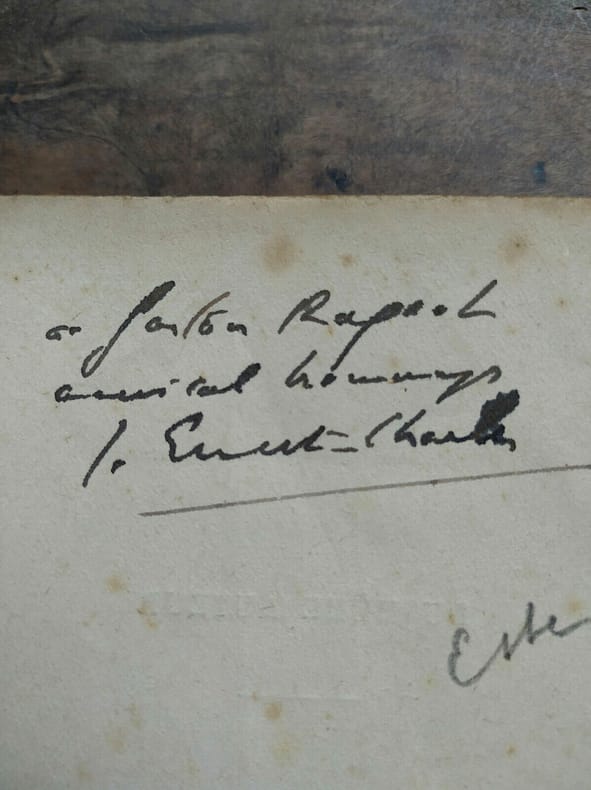 à Gaston Rageot
amical hommage
J. Ernest-Charles